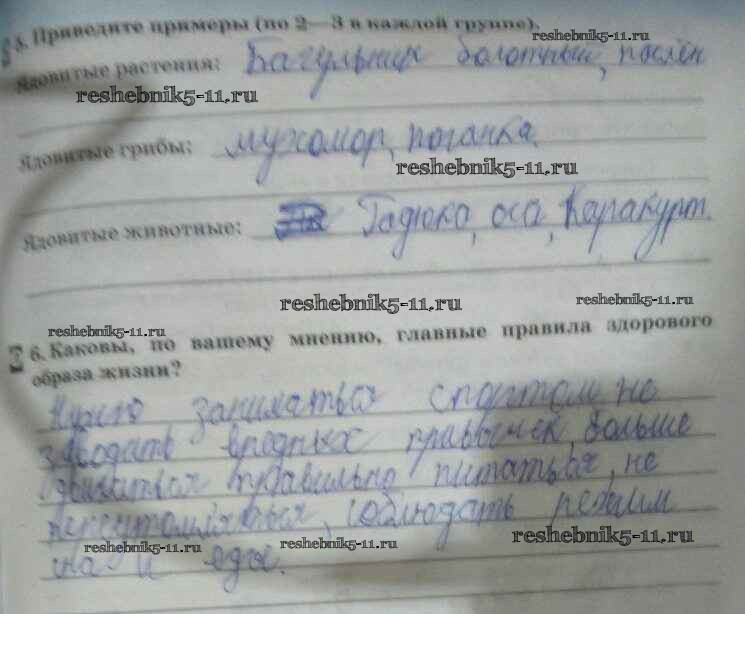 5. Приведите примеры (по 2—3 в каждой группе).
reshebnik5-11.ru
Ядовитые растения: Багульник болотный, паслён
reshebnik5-11.ru
Ядовитые грибы: мухомор, поганка.
reshebnik5-11.ru
Ядовитые животные: Гадюка, оса, Каракурт.
reshebnik5-11.ru
reshebnik5-11.ru
reshebnik5-11.ru
6. Каковы, по вашему мнению, главные правила здорового
образа жизни?
Нужно заниматься спортом, не
заводать вредных правычек, больше
двигаться правильно питаться, не
соблюдать режим
reshebnik5-11.ru
reshebnik5-11.ru
reshebnik5-11.ru
сна и еды.